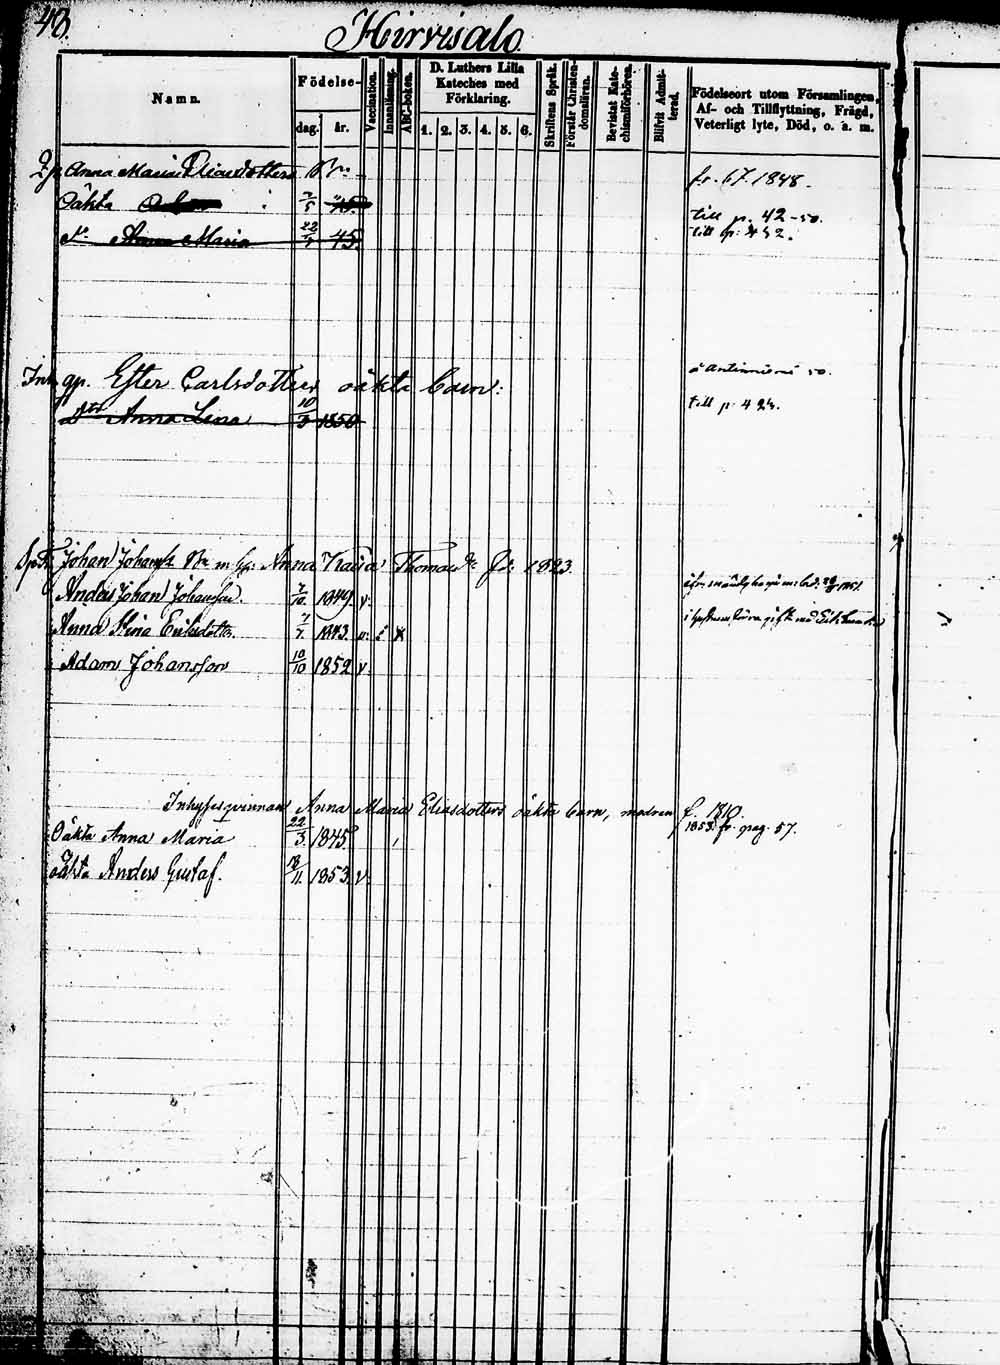 48.
Hirvisalo
Namn.
Födelse-
dag. år.
Vaccination.
Innanläsning.
ABC-boken.
D. Luthers Lilla
Kateches med
Förklaring.
1. 2. 3. 4. 5. 6.
Skriftens Språk.
Förstår Christen-
domsläran.
Bevistat Kate-
chismiförhören.
Blifvit Admit-
terad.
Födelseort utom Församlingen,
Af- och Tillflyttning, Frägd,
Veterligt lyte, Död, o. a. m.
Anna Maria Eliasdotters fr. 67. 1848.
Oäkta 7/5 till p. 42-50.
Anna Maria 22/3 45. till p: 432.
Inh. qv. Ester Carlsdotters oäkta barn: 50.
Dtr Anna Lena 10/3 1850 till p. 424.
Johan Johansk m Anna Thomasdr 1823.
Anders Johan Johansson. 7/10 1849. v.
Anna Stina Eriksdotter 1843. v.
Adam Johansson 10/10 1852 v.
Inhysesqvinnan Anna Maria Eliasdotters oäkta barn, modren f. 1810.
Oäkta Anna Maria 22/3. 1845. 1853. fr. pag. 57.
oäkta Anders Gustaf. 18/11. 1853. v.